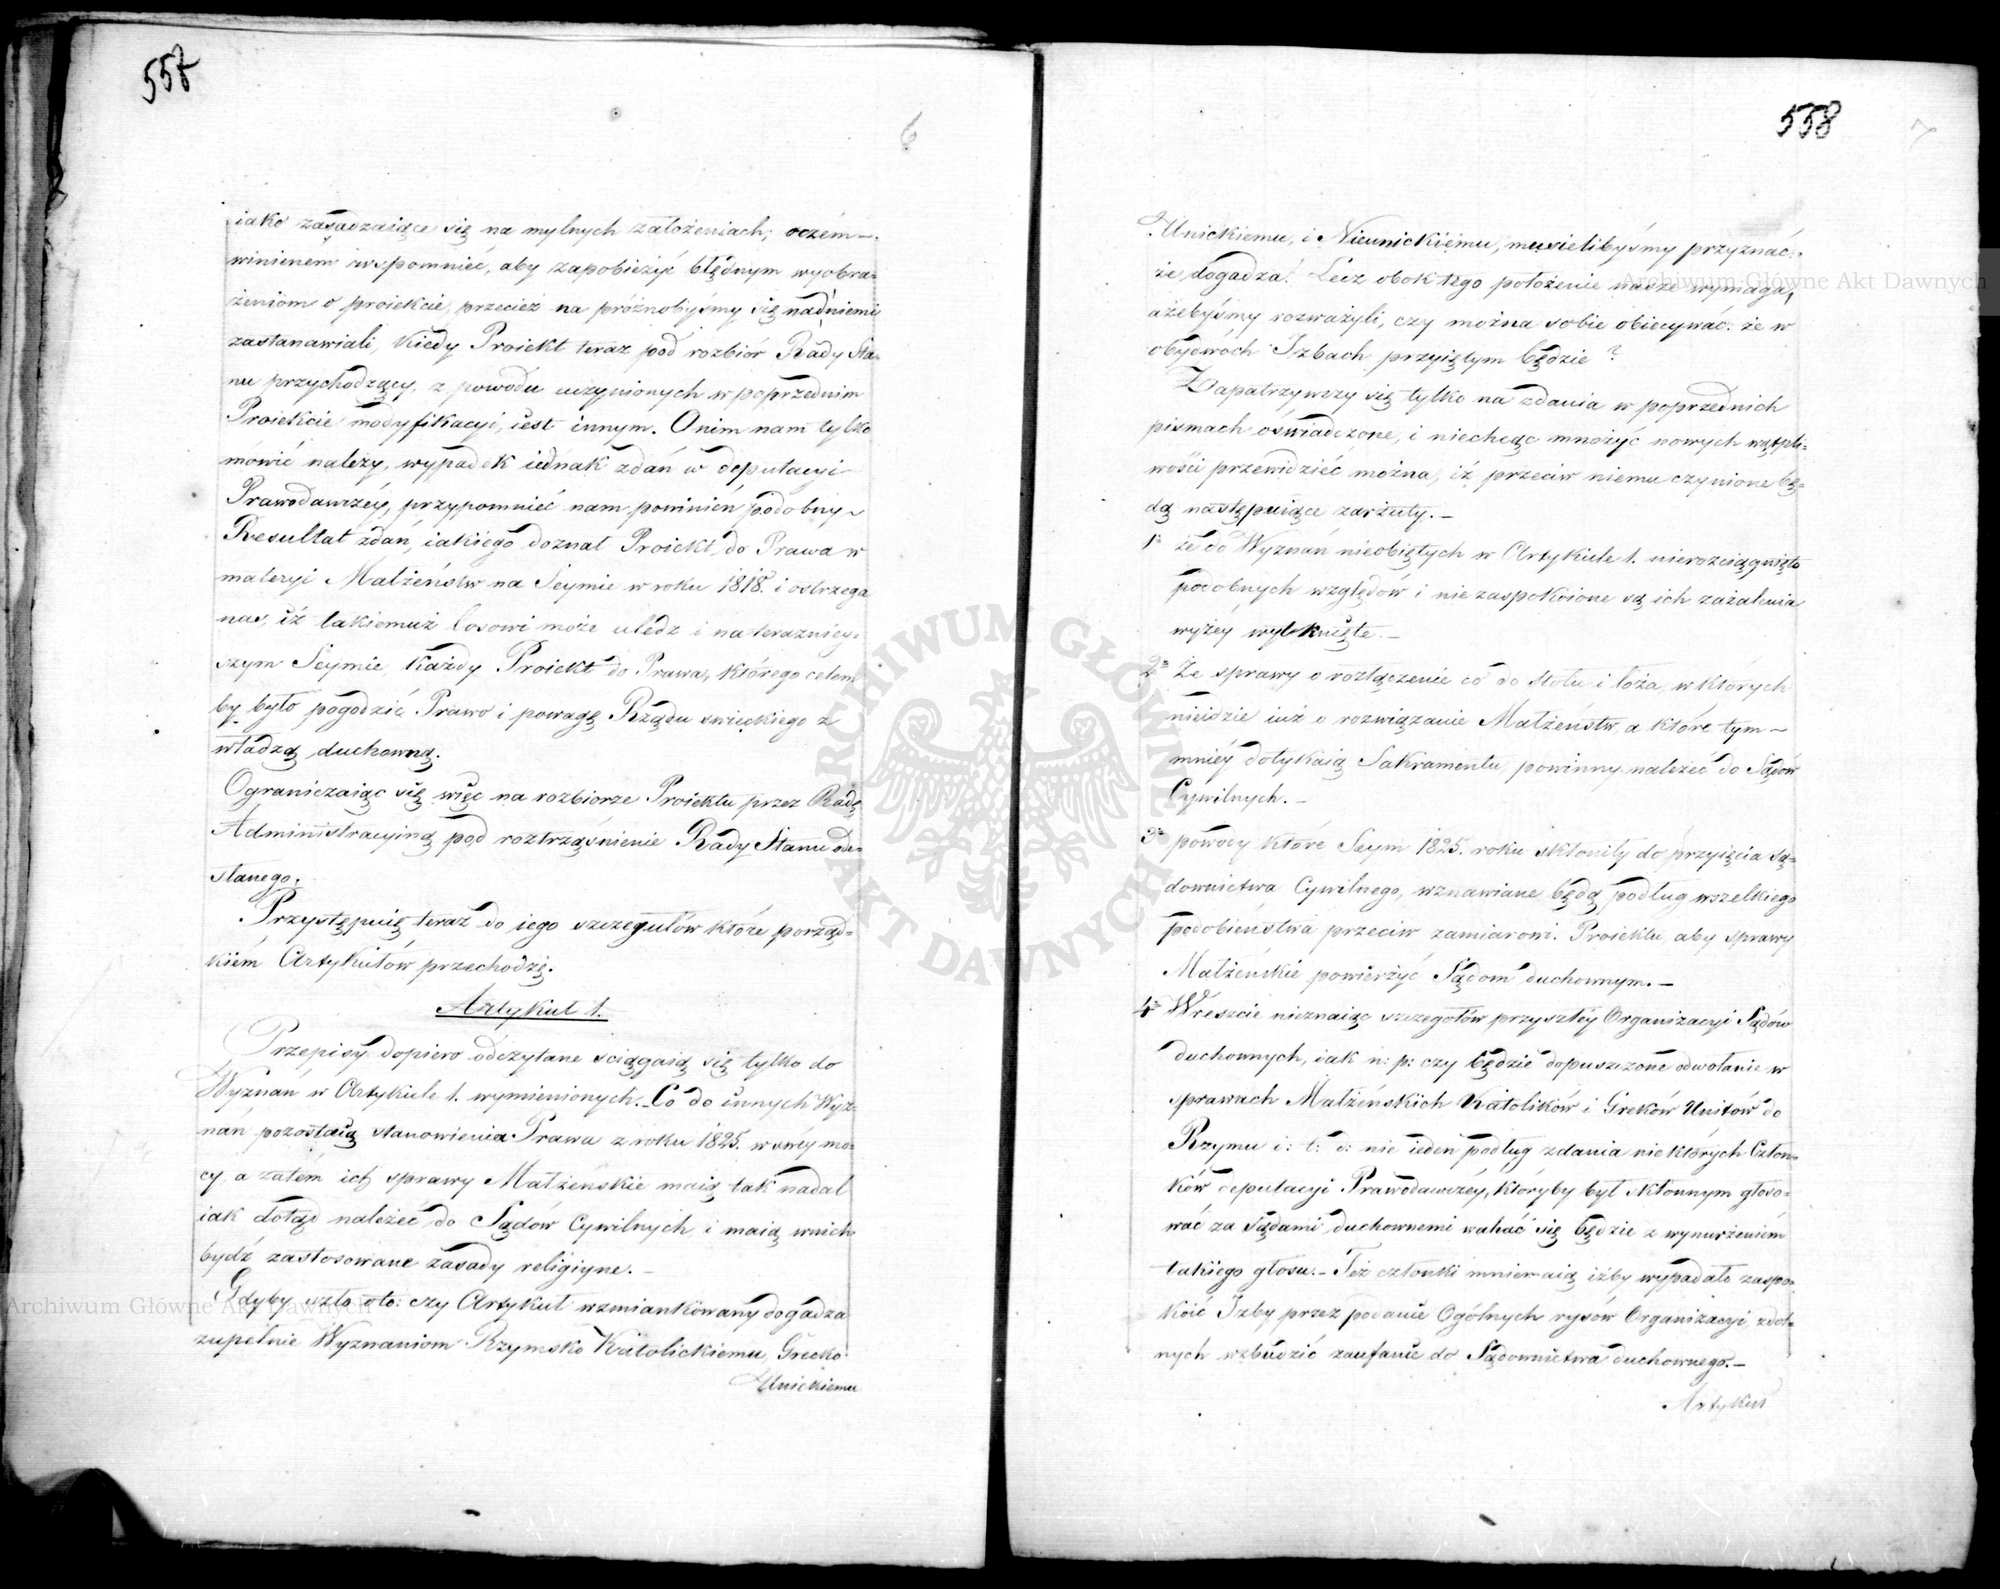 557
6
iako zasadzaiące się na mylnych założeniach; oczém
winienem wspomnieć, aby zapobieżyć błędnym wyobra-
żeniom o proiekcie, przecież na próżnobyśmy się nadniemi
zastanawiali, kiedy Proiekt teraz pod rozbiór Rady Sta-
nu przychodzący, z powodu uczynionych w poprzednim
Proiekcie modyfikacyi, iest innym. Onim nam tylko
mówić należy, wypadek iednak zdań w deputacyi
Prawodawczéy, przypomnieć nam powinien podobny
Resultat zdań, iakiego doznał Proiekt do Prawa w
materyi Małżeństw na Seymie w roku 1818. i ostrzega
nas, iż takiemuż losowi może uledz i na terazniey-
szym Seymie, każdy Proiekt do Prawa, którego celem
by było pogodzić Prawo i powagę Rządu swieckiego z
władzą duchowną.
Ograniczaiąc się więc na rozbiorze Proiektu przez Radę
Administracyiną pod roztrząśnienie Rady Stanu ode-
słanego.
Przystępuię teraz do iego szczegułów które porząd-
kiém Artykułów przechodzę.
Artykuł 1.
Przepisy dopiero odczytane sciągaią się tylko do
Wyznań w Artykule 1. wymienionych. Co do innych Wyz-
nań pozostaią stanowienia Prawa z roku 1825. w swéy mo-
cy a zatém ich sprawy Małżeńskie maią tak nadal
iak dotąd należéć do Sądów Cywilnych, i maią wnich
bydź zastosowane zasady religiyne.
Gdyby szło oto: czy Artykuł wzmiankowany dogadza
zupełnie Wyznaniom Rzymsko Katolickiemu, Grecko
Unickiemu
558
7
Unickiemu, i Nieunickiému, musielibyśmy przyznać:
że dogadza! Lecz obok tego położenie nasze wymaga,
ażebyśmy rozważyli, czy można sobie obiecywać: że w
obydwóch Izbach przyiętym będzie?
Zapatrzywszy się tylko na zdania w poprzednich
pismach oświadczone, i niechcąc mnożyć nowych wątpli-
wości przewidziéć można, iż przeciw niemu czynione bę-
dą następuiące zarzuty.
1º że do Wyznań nieobiętych w Artykule 1. nierozciągnięto
podobnych względów i nie zaspokoione są ich zażalenia
wyżey wytknięte.
2º Że sprawy o rozłączenie co do stołu i łoża, w których
nieidzie iuż o rozwiązanie Małżeństw, a które tym
mniéy dotykaią Sakramentu, powinny należéć do Sądów
Cywilnych.
3º powody które Seym 1825. roku skłoniły do przyięcia są-
downictwa Cywilnego, wznawiane będą podług wszelkiego
podobieństwa przeciw zamiarowi Proiektu, aby sprawy
Małżeńskie powierżyć Sądom duchownym.
4º Wreszcie nieznaiąc szczegółów przyszłéy Organizacyi Sądów
duchownych, iak n: p: czy będzie dopuszczone odwołanie w
sprawach Małżeńskich Katolików i Greków Unitów do
Rzymu i: t: d: nie ieden podług zdania niektórych Człon-
ków deputacyi Prawodawczéy, któryby był skłonnym głoso-
wać za sądami duchownemi wahać się będzie z wynurzeniem
takiego głosu. Też członki mniemaią iżby wypadało zaspo-
koić Izby przez podanie Ogólnych rysów Organizacyi zdol-
nych wzbudzić zaufanie do Sądownictwa duchownego.
Artykuł
Archiwum Główne Akt Dawnych
Archiwum Główne Akt Dawnych
ARCHIWUM GŁÓWNE AKT DAWNYCH